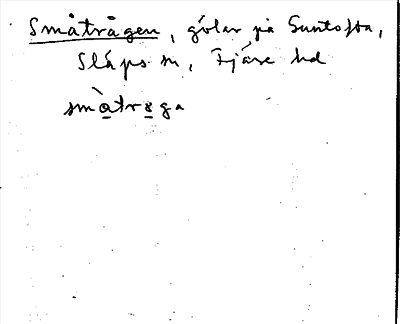 Småtrågen, gölar på Suntofta,
Släps sn, Fjäre hd
smàtrega